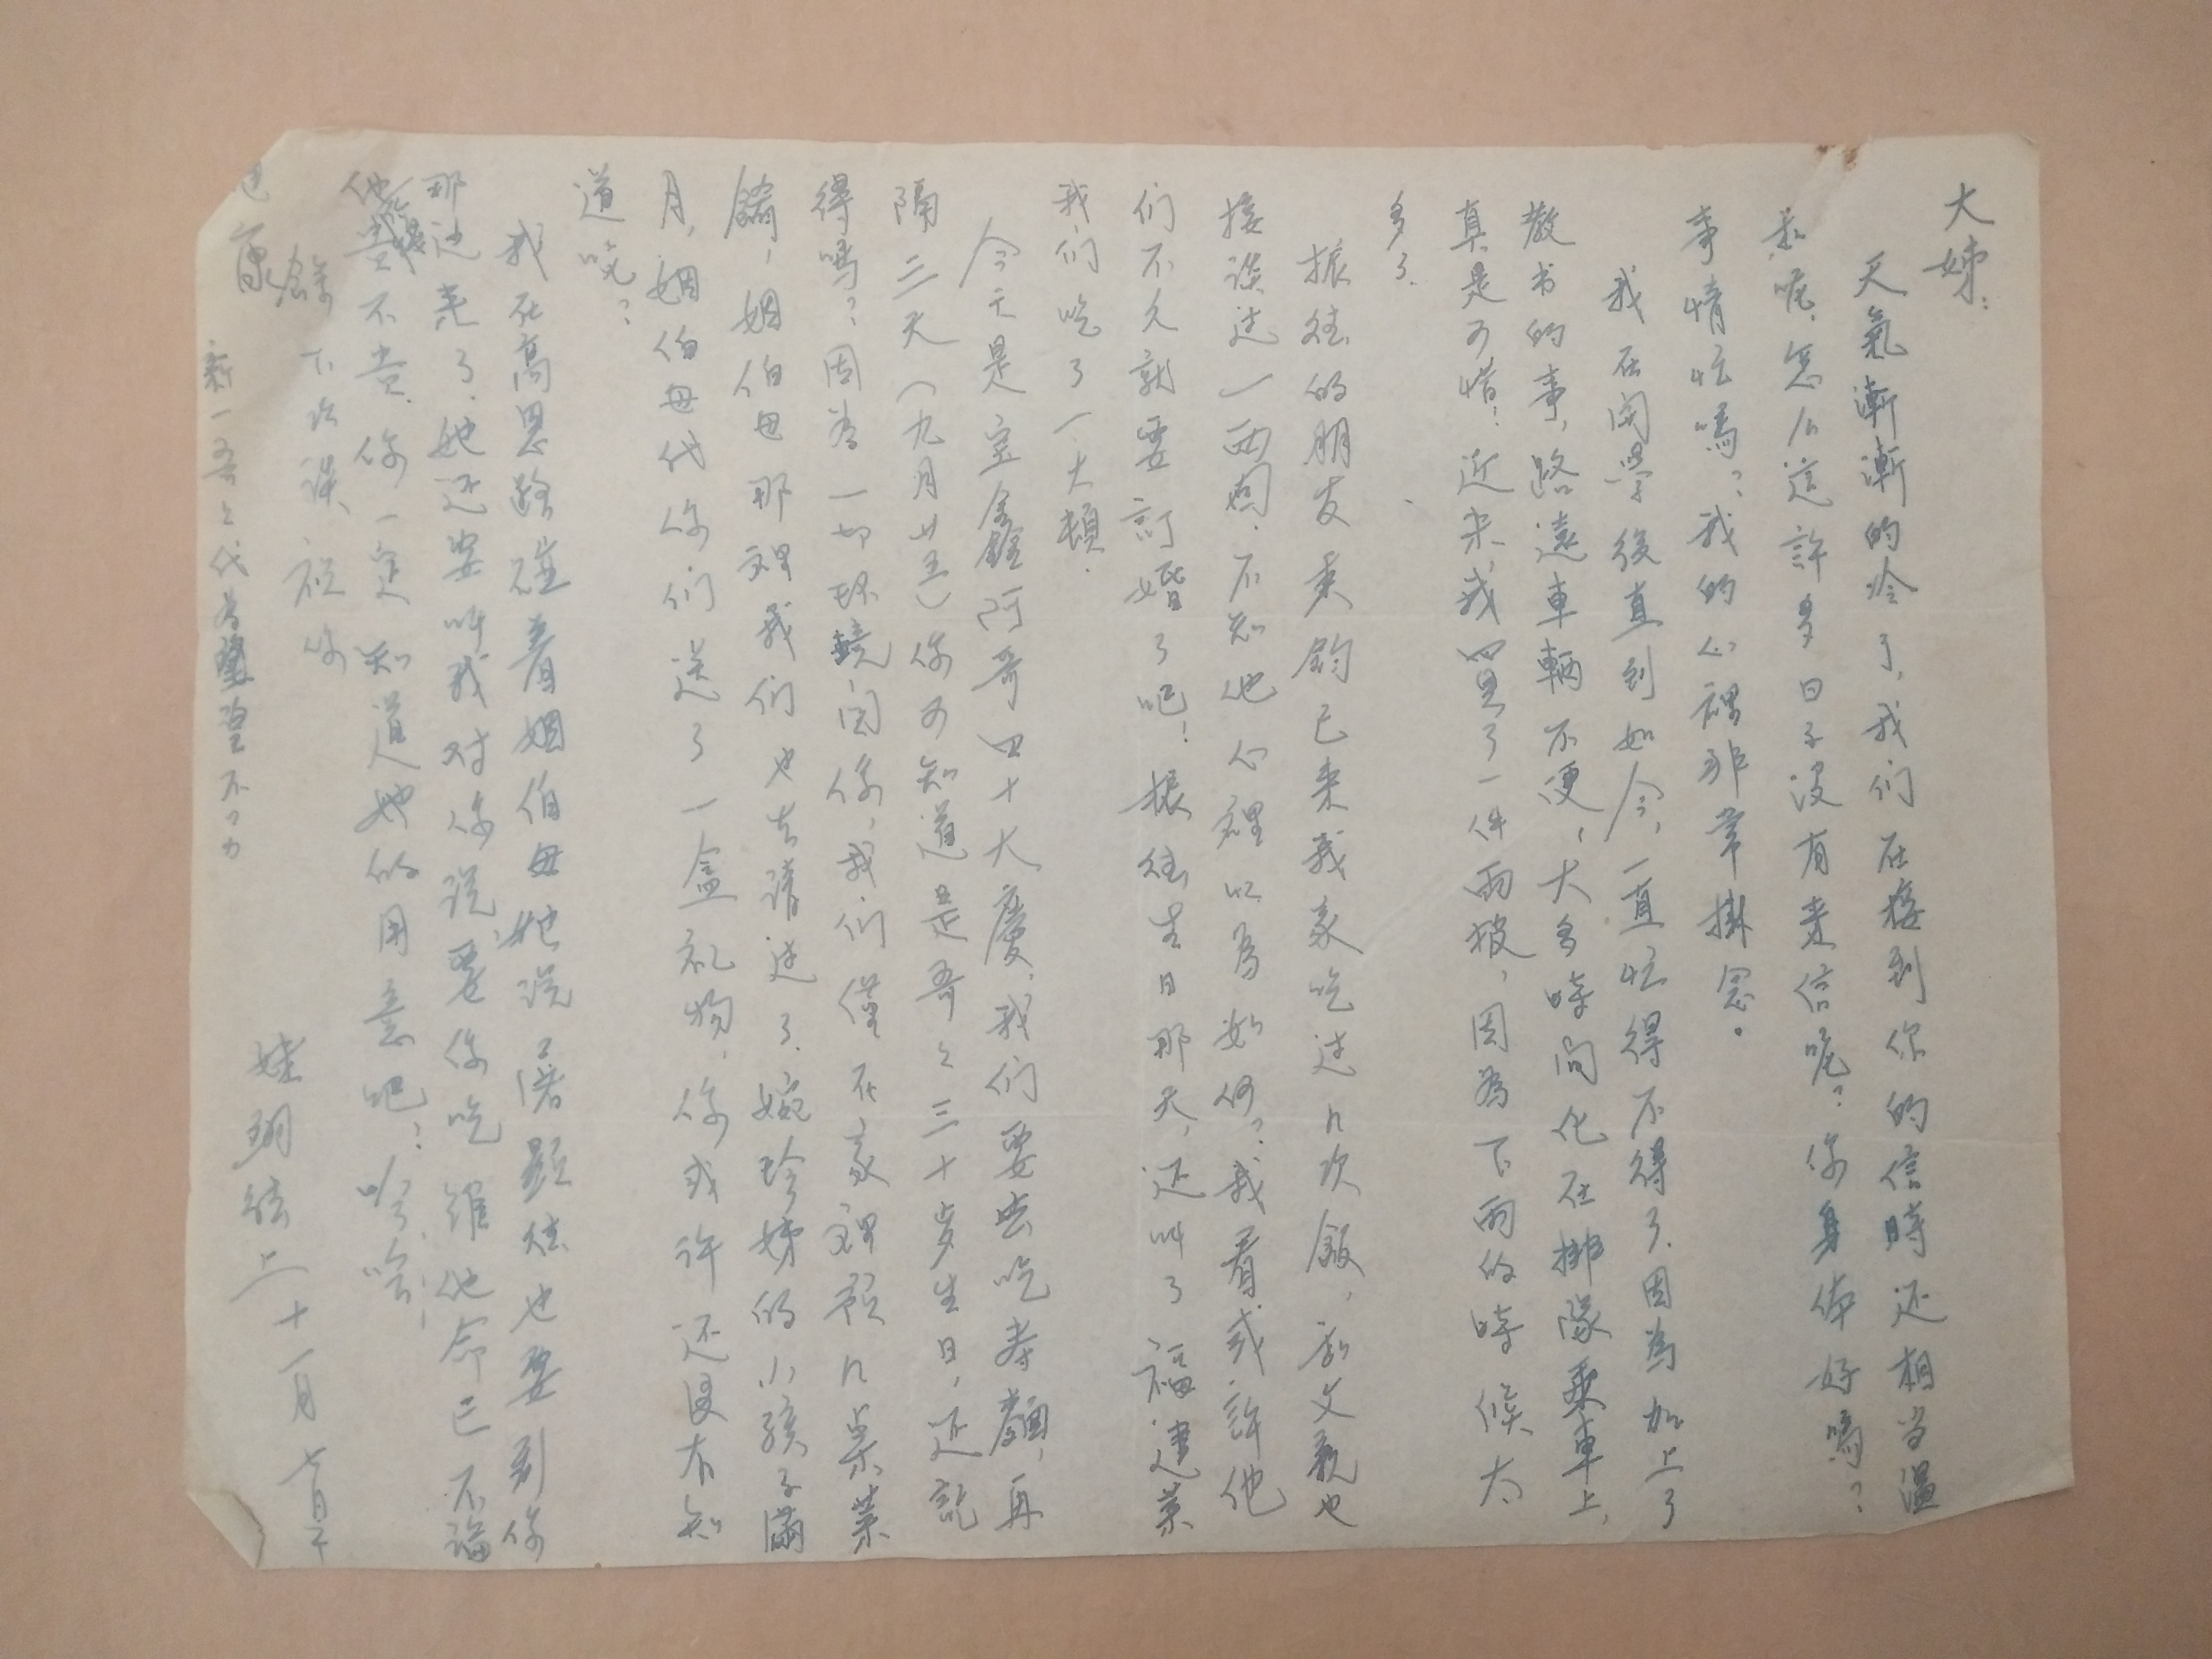 大姊：
天氣漸漸的冷了，我们在接到你的信時还相当温
和呢，怎么這許多日子没有来信呢？你身体好嗎？
事情忙嗎？我的心裡非常掛念。
我在開學後直到如今，一直忙得不得了，因為加上了
教书的事，路遠車輛不便，大多時间化在排隊乘車上，
真是可惜！近来我買了一件雨披，因為下雨的時候太
多了．
振法的朋友秉鈞已来我家吃过几次飯，和文
接谈过一两回．不知他心裡以為如何？我看或許他
们不久就要訂婚了吧！振法生日那天，还叫了福建菜
我们吃了一大頓．
今天是宝鑫阿哥四十大慶，我们要去吃寿麵，再
隔三天（九月廿五）你可知道是哥之三十岁生日，还記
得嗎？因為一切环境闵係，我们僅在家裡預几桌菜
餚，姻伯母那裡我们也去請过了．婉珍姊的小孩子滿
月，姻伯母代你们送了一盒礼物，你或许还没有知
道吧？
我在高恩路碰着姻伯母她说要到你
那边来了．她还要叫我对你说，要你吃
不贵．你一定知道她的用意吧？哈哈！
餘下次谈．祝你
康
新一哥之代為
上十一月七日下